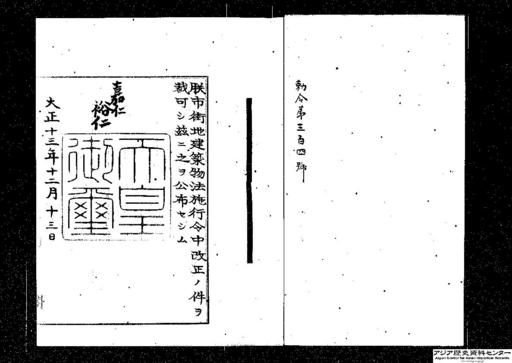 勅令第三百四號
朕市街地建築物法施行令中改正ノ件ヲ
裁可シ茲ニ之ヲ公布セシム
嘉仁
裕仁
天皇
御璽
大正十三年十二月十三日
アジア歴史資料センター
Japan Center for Asian Historical Records